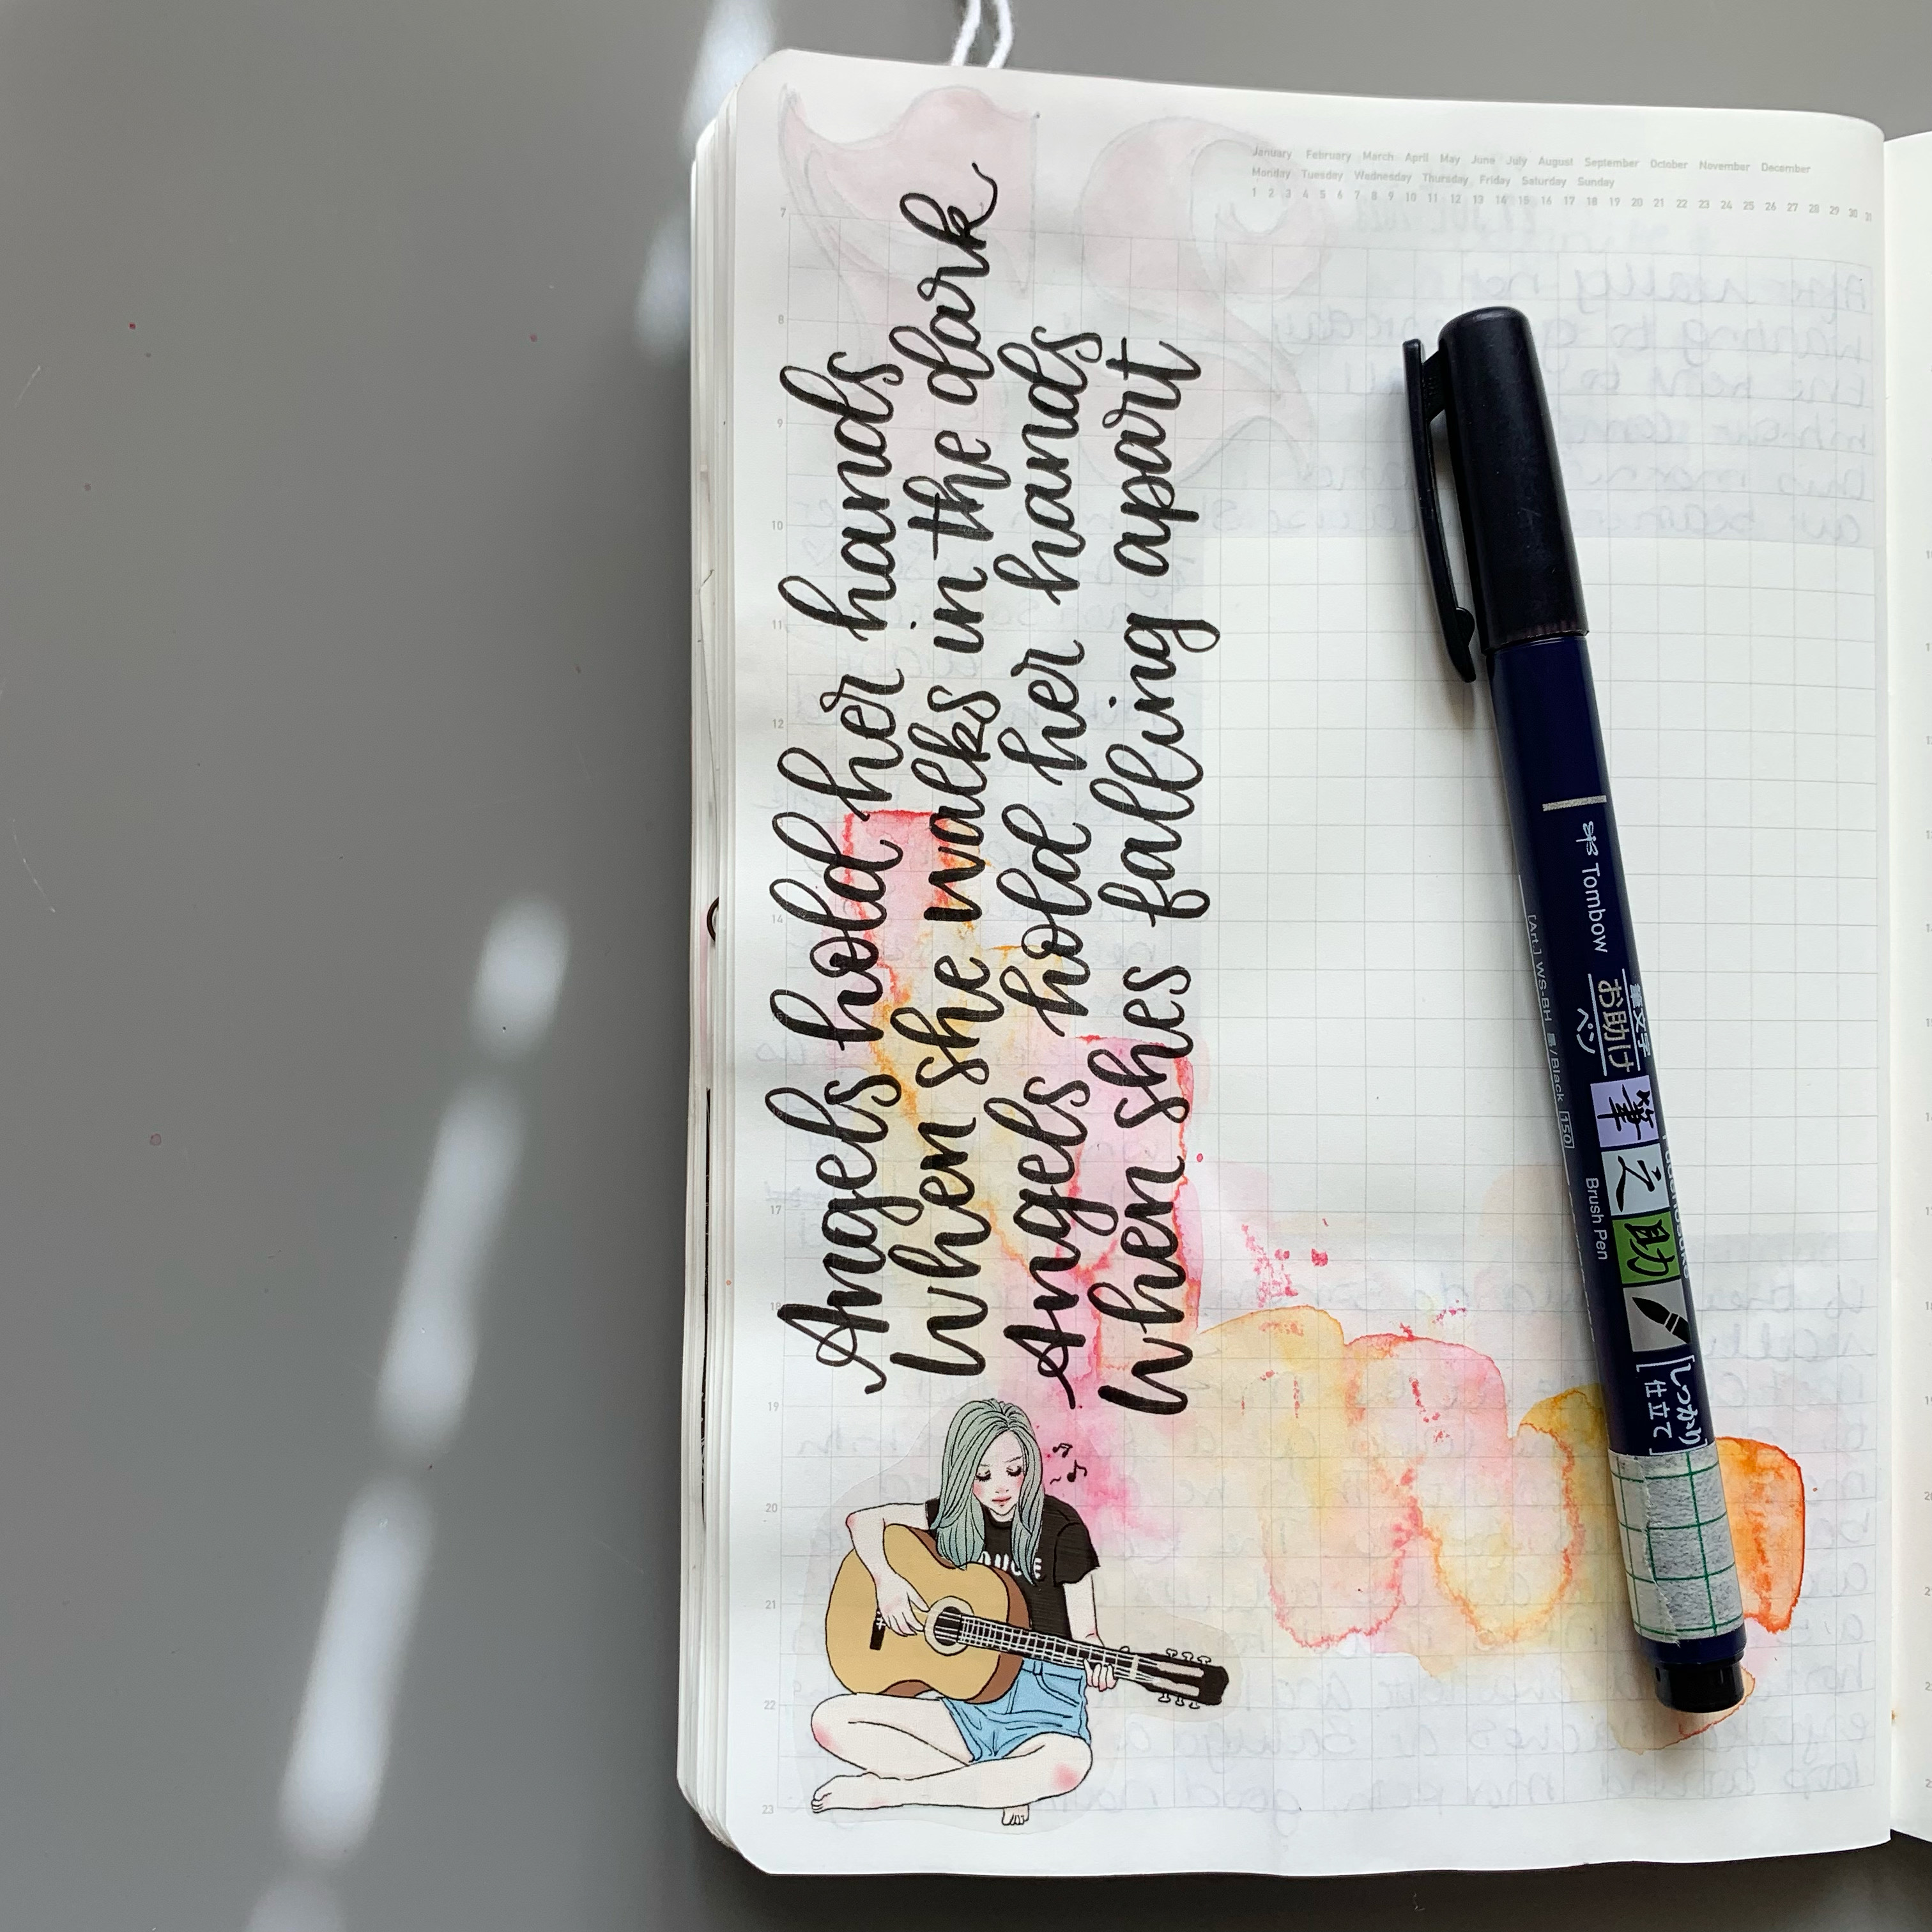 January February March April May June July August September October November December
Monday Tuesday Wednesday Thursday Friday Saturday Sunday
1 2 3 4 5 6 7 8 9 10 11 12 13 14 15 16 17 18 19 20 21 22 23 24 25 26 27 28 29 30 31
Angels hold her hands
When she walks in the dark
Angels hold her hands
When shes falling apart
7
8
9
10
11
12
14
17
18
19
20
21
22
23
Tombow
筆文字
お助け
ペン
筆之助
[しっかり
仕立て]
[Art.] WS-BH 黒/Black 150
Brush Pen